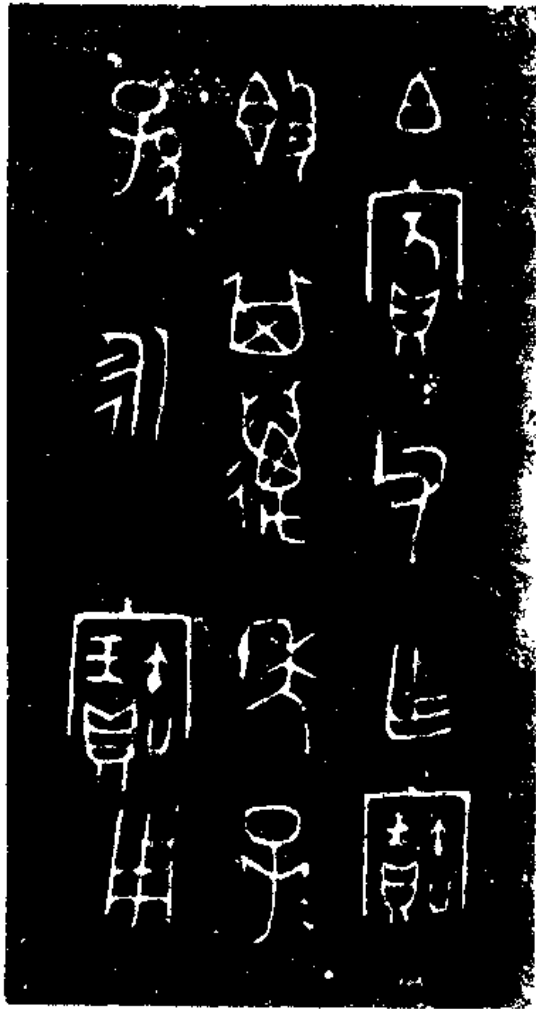 白賓父乍寶
𣪘其萬年子
孫永寶用